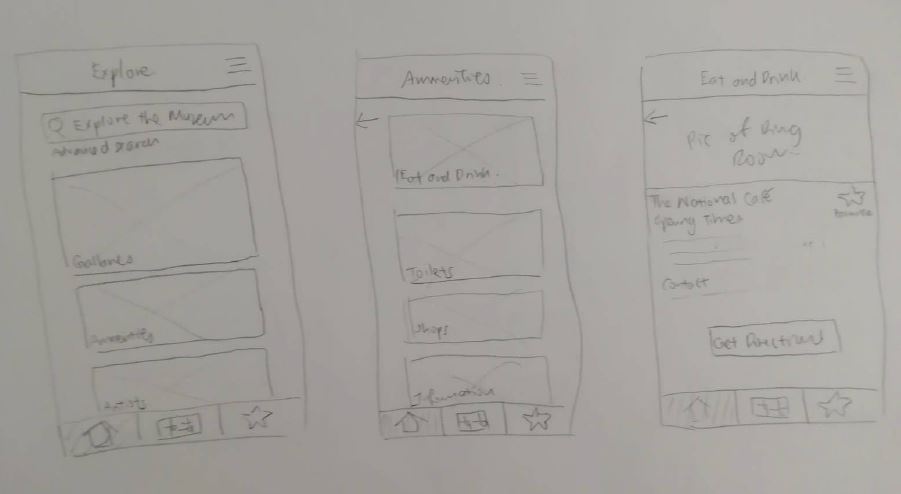 Explore
Explore the Museum
Advanced search
Galleries
Ammenities
Artists
Ammenities
Eat and Drink
Toilets
Shops
Information
Eat and Drink
Pic of
Room
The National Café
Opening Times
Favourite
Contact
Get Directions